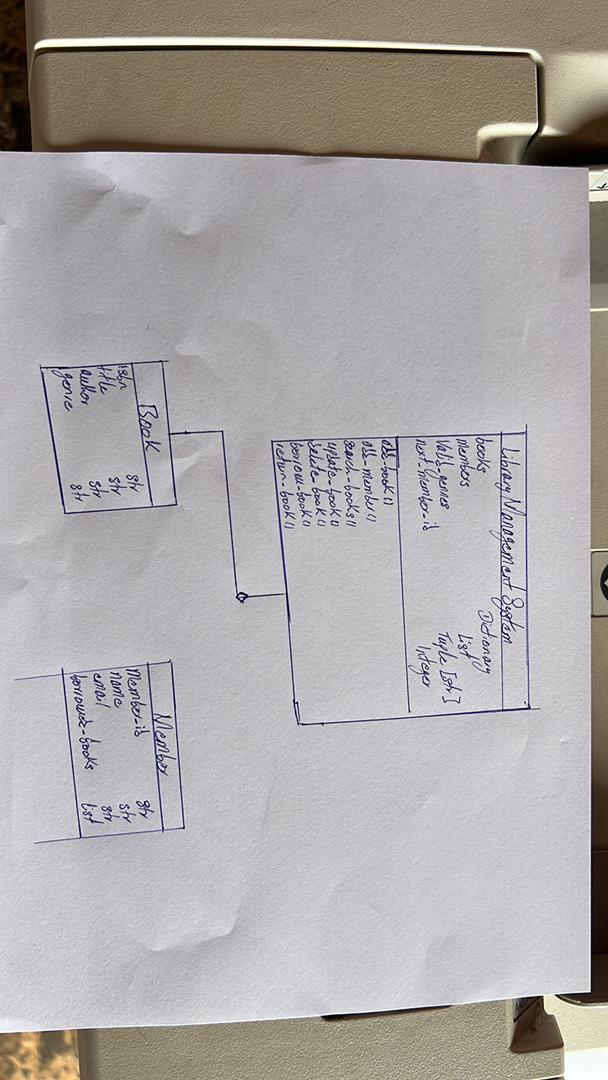 Library Management System
books Dictionary
members List
Valid-genres Tuple [str]
next-member-id Integer
add-book()
add-member()
search-books()
update-book()
delete-book()
borrow-book()
return-book()
Book
isbn str
title str
author str
genre str
Member
Member-id str
name str
email str
borrowed-books List